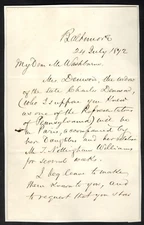 Baltimore
24 July 1872
My Dear Mr. Washburne
Mrs. Denison, the widow
of the late Charles Denison,
(who I suppose you knew
as one of the Representatives
of Pennsylvania) will be
in Paris, accompanied by
her Daughter and
Mr. J. Nottingham Williams
for several weeks.
I beg leave to make
them known to you, and
to request that you